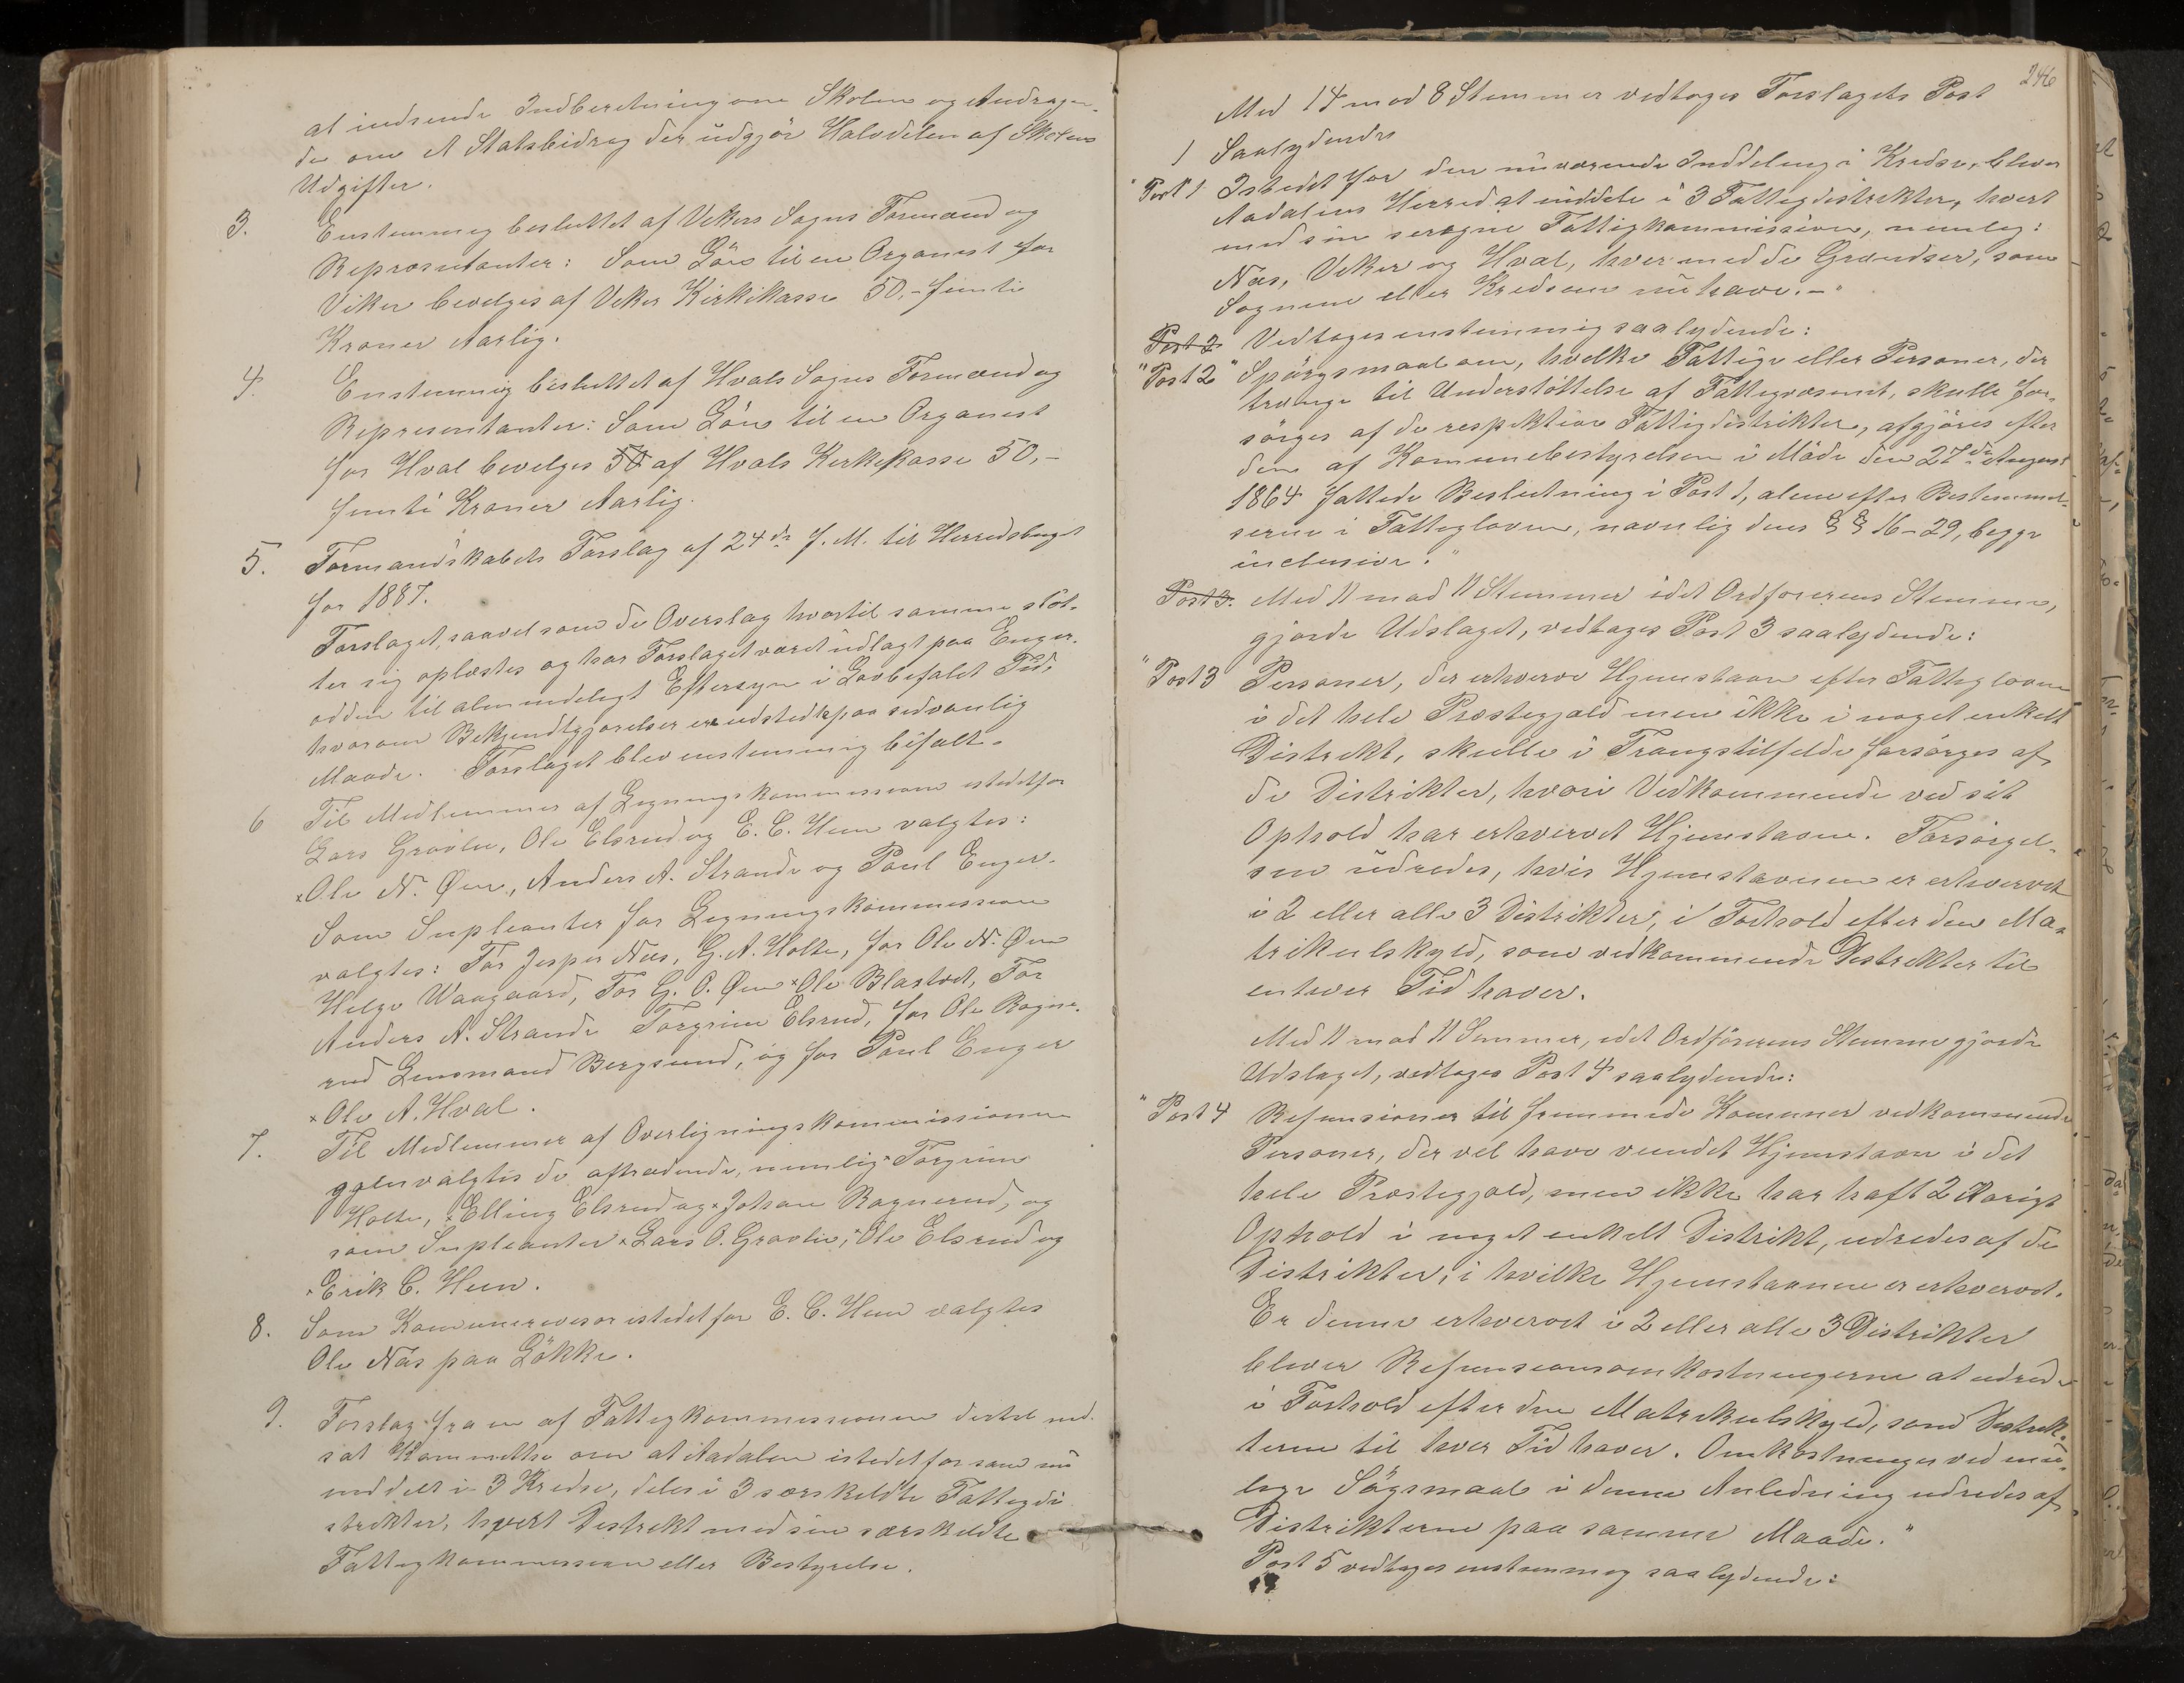 at indsende Indberetning om Skolen og Andragen-
de om et Statsbidrag der udgjör Halvdelen af Skolens
Udgifter.
3. Enstemmig besluttet af Vikers Sogns Formænd og
Repræsentanter: Som Lön til en Organist for
Viker bevilges af Viker Kirkekasse 50,- femti
Kroner Aarlig.
4. Enstemmig besluttet af Hvals Sogns Formænd og
Representanter: Som Lön til en Organist
for Hval bevilges 50 af Hvals Kirkekasse 50,-
femti Kroner Aarlig.
5. Formandskabets Forslag af 24de f. M. til Herredsbuget
for 1887.
Forslaget, saavel som de Overslag hvortil samme stöt-
ter sig oplæstes og har Forslaget været udlagt paa Enger-
odden til almindeligt Eftersyn i Lovbefalet Tid,
hvorom Bekjendtgjørelser er udstedt paa sedvanlig
Maade. Forslaget blev enstemmig bifalt.
6 Til Medlemmer af Ligningskommissionen istedetfor
Lars Gravlie, Ole Elsrud og E. C. Heen valgtes:
×Ole N. Øen, Anders A. Strande og Paul Enger.
Som Supleanter for Ligningskommissionen
valgtes: For Jesper Næs, G. A. Holte, for Ole N. Øen
Helge Waagaard, For G. O. Øen ×Ole Blastvet, For
Anders A. Strande Torgrim Elsrud, for Ole Ragne-
rud Lensmand Bergsund, og for Paul Enger
×Ole A. Hval.
7. Til Medlemmer af Overligningskommissionen
gjenvalgtes de aftrædende, nemlig ×Torgrim
Holte, ×Elling Elsrud og ×Johan Ragnerud, og
som Supleanter ×Lars O. Gravlie, ×Ole Elsrud og
×Erik C. Heen.
8. Som Komunerevisor istedet for E. C. Heen valgtes
Ole Näs paa Lökke.
9. Forslag fra en af Fattigkommissionen dertil ned-
sat Kommitte om at Aadalen istedet for som nu
inddelt i 3 Kredse, deles i 3 særskildte Fattigdi-
strikter, hvert Distrikt med sin særskildte
Fattigkommission eller Bestyrelse.
246
Med 14 mod 8 Stemmer vedtoges Forslagets Post
1 Saalydende
"Post 1 Istedet for den nuværende Inddeling i Kredse, bliver
Aadalens Herred at inddele i 3 Fattigdistrikter, hvert
med sin seregne Fattigkommission, nemlig:
Næs, Viker og Hval, hver med de Grændser, som
Sognene eller Kredsene nu have.-"
Post 2 Vedtoges enstemmig saalydende:
"Post 2" Spörgsmaal om, hvilke Fattige eller Personer, der
trænge til Understöttelse af Fattigvæsenet, skulle for-
sörges af de respektive Fattigdistrikter, afgjöres efter
den af Komunebestyrelsen i Möde den 27de August
1864 fattede Beslutning i Post 1, alene efter Bestemmel-
serne i Fattigloven, navnlig dens §§ 16-29, begge
inclusive."
Post 3. Med 11 mod 11 Stemmer idet Ordførerens Stemme,
gjorde Udslaget, vedtoges Post 3 saalydende:
"Post 3 Personer, der erhverve Hjemstavn efter Fattigloven
i det hele Præstegjæld men ikke i noget enkelt
Distrikt, skulle i Trangstilfelde forsörges af
de Distrikter, hvori Vedkommende ved sit
Ophold har erhvervet Hjemstavn. Forsörgel-
sen udredes, hvis Hjemstavnen er erhvervet
i 2 eller alle 3 Distrikter, i Forhold efter den Ma-
trikulskyld, som vedkommende Distrikter til
enhver Tid haver.
Med 11 mod 11 Semmer, idet Ordförerens Stemme gjorde
Udslaget, vedtoges Post 4 saalydende:
"Post 4 Refusioner til fremmede Komuner vedkommende
Personer, der vel have vundet Hjemstavn i det
hele Præstegjæld, men ikke har haft 2 Aarigt
Ophold i noget enkelt Distrikt, udredes af de
Distrikter, i hvilke Hjemstavnen er erhvervet.
Er denne erhvervet i 2 eller alle 3 Distrikter
bliver Refusionsomkostningerne at udrede
i Forhold efter den Matrikulskyld, som Distrik-
terne til hver Tid haver. Omkostninger ved mu-
lige Sögsmaal i denne Anledning udredes af
Distrikterne paa samme Maade."
Post 5 vedtoges enstemmig saalydende: